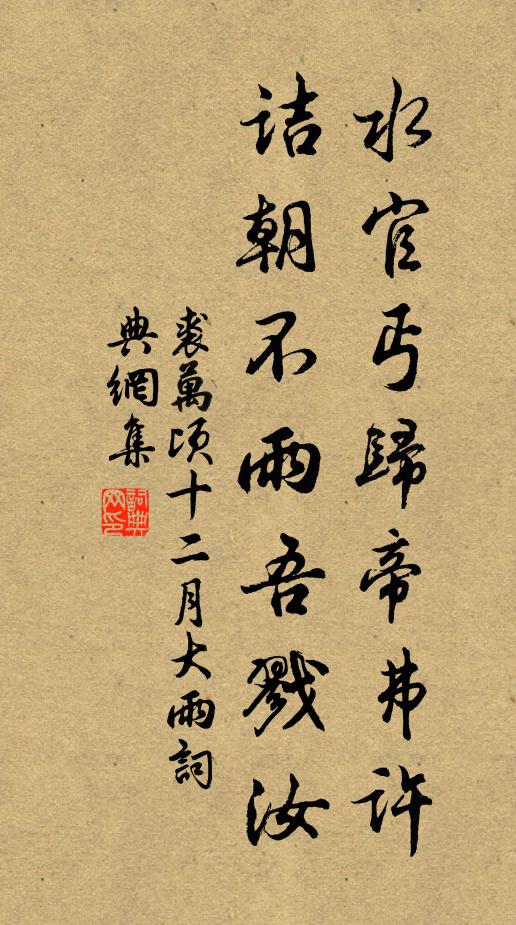 水官丐歸帝弗許
詰朝不雨吾戮汝
裘萬頃十二月大雨詞
典網集
詞典网印